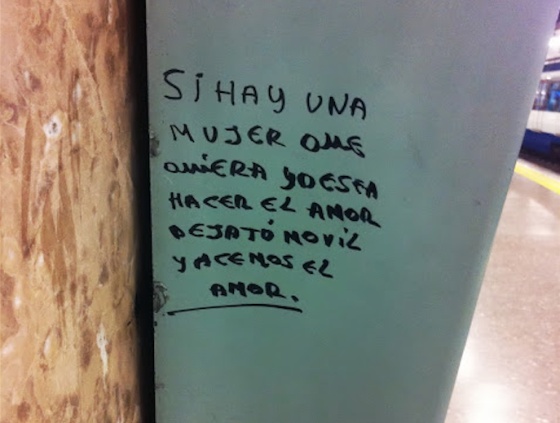 SI HAY UNA
MUJER QUE
QUIERA YDESEA
HACER EL AMOR
DEJATÓ MOVIL
Y ACEMOS EL
AMOR.